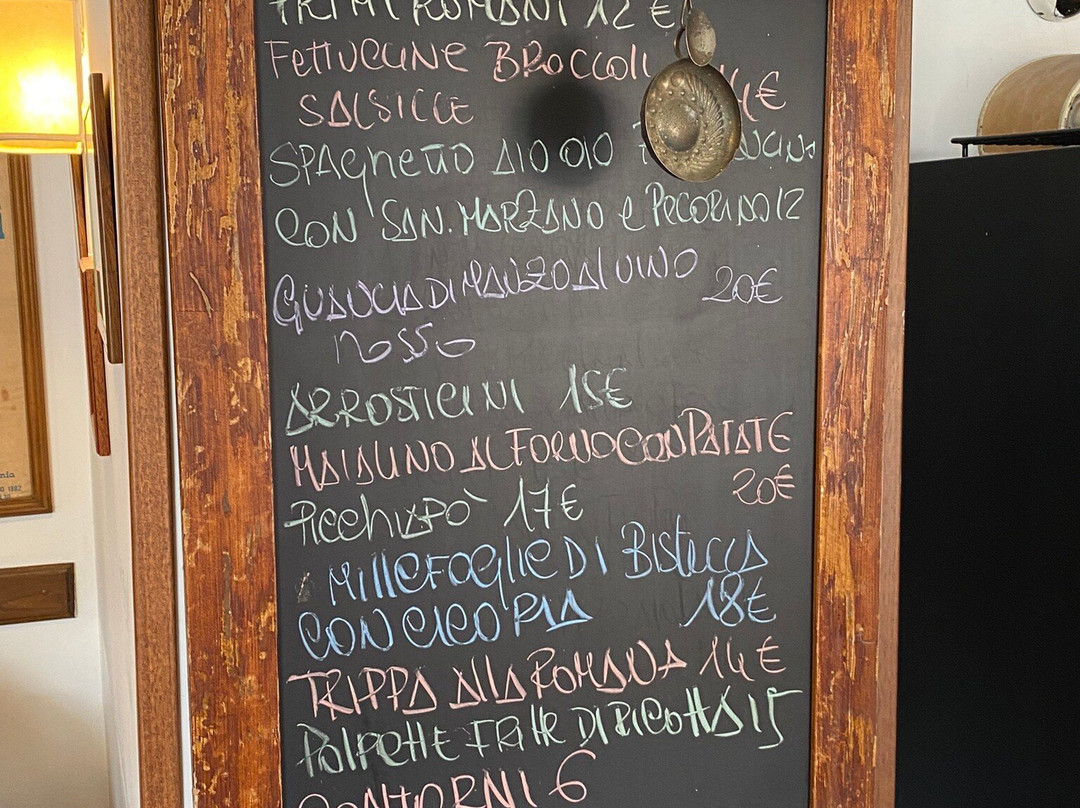 PRIMI ROMANI 12 €
FETTUCCINE BROCCOLI
SALSICCE 14€
SPAGHETTO AIO OIO
CON SAN. MARZANO e PECORINO 12
GUANCIA DI MANZO AL VINO 20€
ROSSO
ARROSTICINI 15€
MAIALINO AL FORNO CON PATATE
20€
PICCHIAPÒ 17€
MILLEFOGLIE DI BISTECCA
CON CICORIA 18€
TRIPPA ALLA ROMANA 14€
POLPETTE FRITTE DI RICOTTA 15
CONTORNI 6
nia
1982